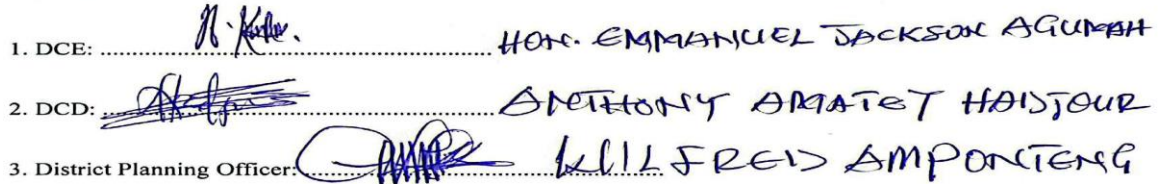 1. DCE: .......................................................... HON. EMMANUEL JACKSON AGUMAH
2. DCD: .......................................................... ANTHONY AMATEY HADJOUR
3. District Planning Officer: .......................................................... WILFRED AMPONTENG